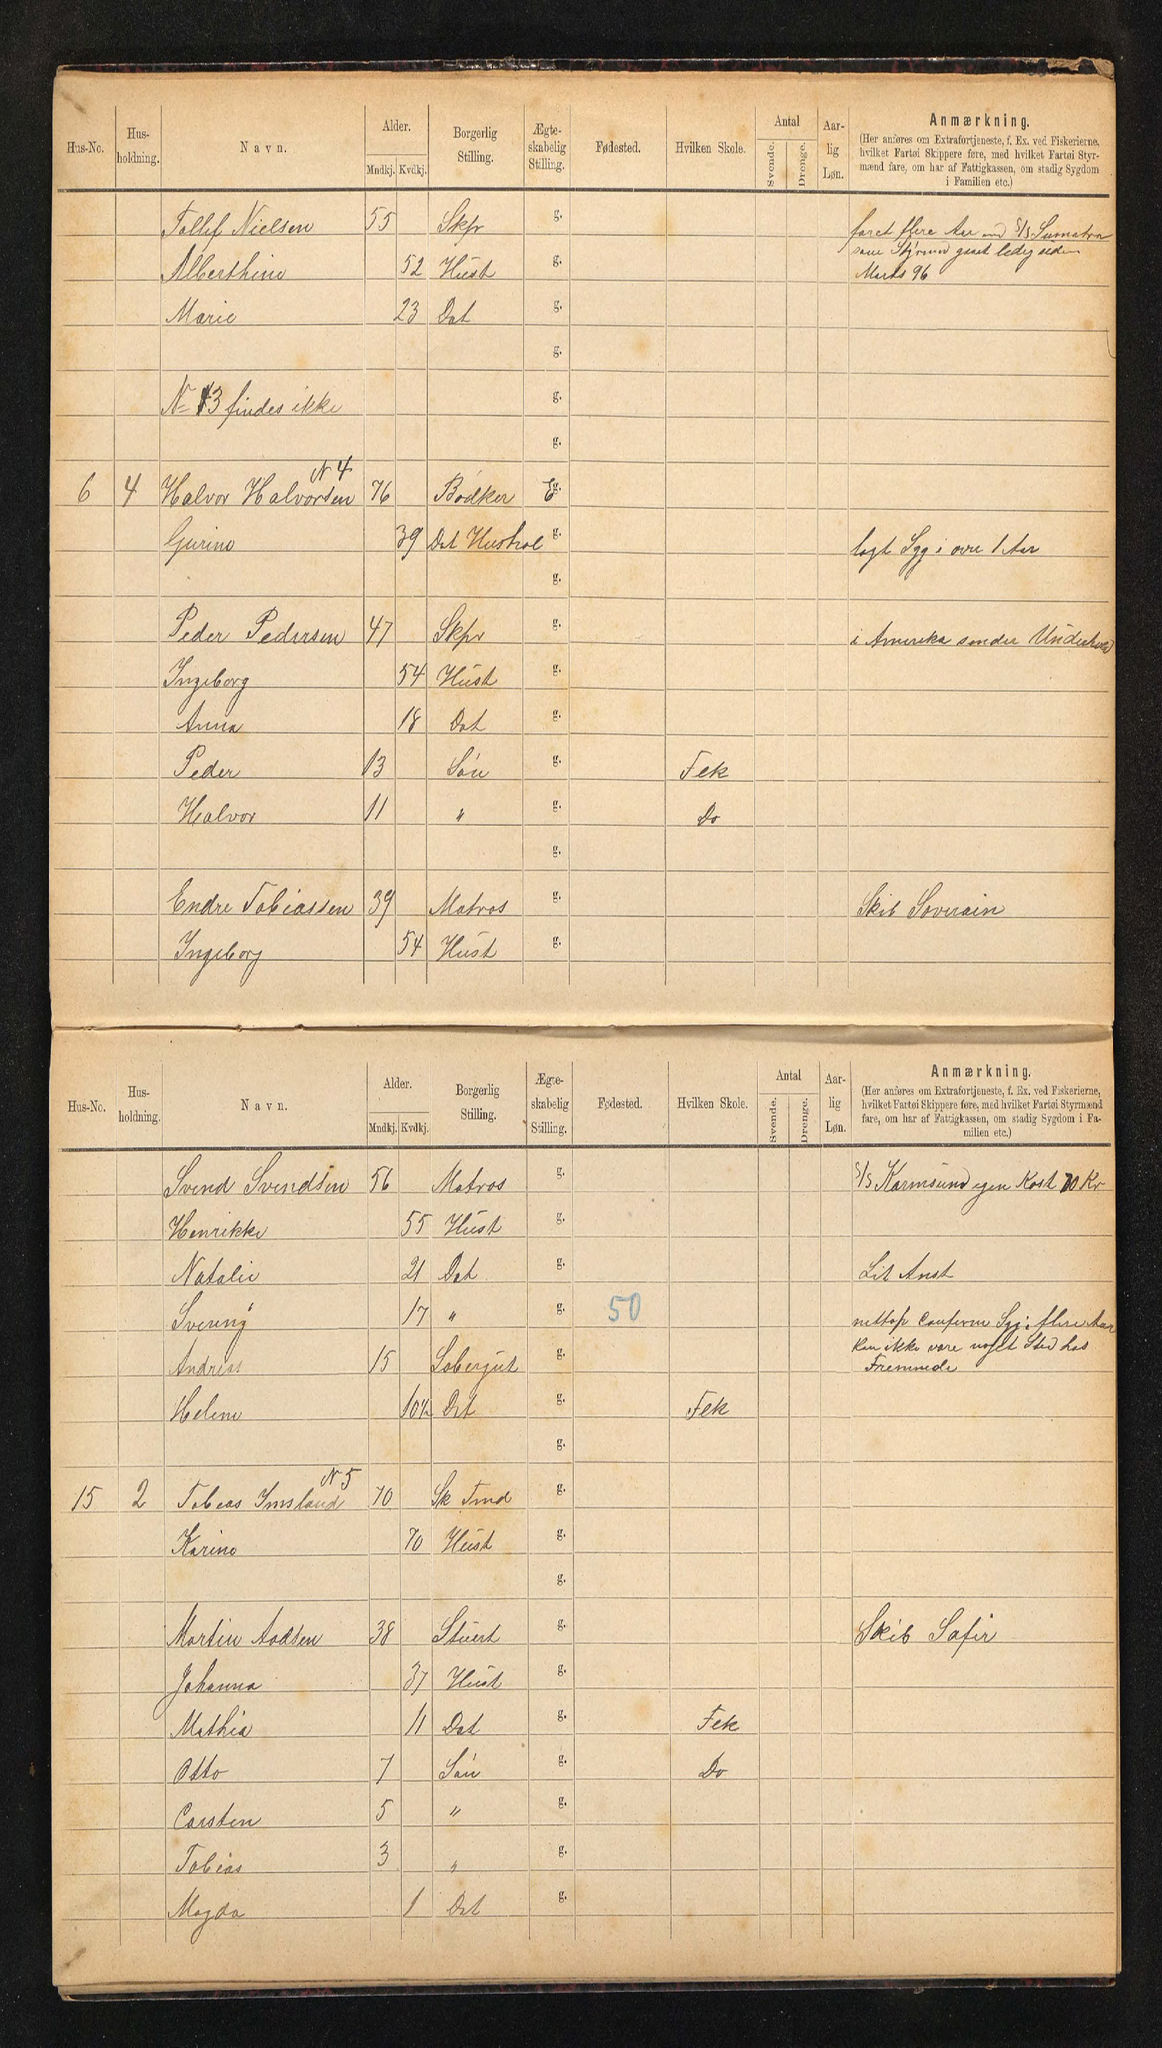 Hus-No. Hus-holdning. Navn. Alder. Mndkj. Kvdkj. Borgerlig Stilling. Ægte-skabelig Stilling. Fødested. Hvilken Skole. Antal Svende. Drenge. Aar-lig Løn. Anmærkning.
(Her anføres om Extrafortjeneste, f. Ex. ved Fiskerierne,
hvilket Fartøi Skippere føre, med hvilket Fartøi Styr-
mænd fare, om har af Fattigkassen, om stadig Sygdom
i Familien etc.)
Tollef Nielsen 55 Skpr g. faret flere Aar med S/S Sumatra
som Styrmd gaaet ledig siden
Alberthine 52 Hust g. Marts 96
Marie 23 Dat g.
g.
N= 13 findes ikke g.
g.
N 4
6 4 Halvor Halvorsen 76 Bødker E g.
Gurine 39 Dat Hushol g. lagt Syg i over 1 Aar
g.
Peder Pedersen 47 Skpr g. i Amerika sender Underhold
Ingeborg 54 Hust g.
Anna 18 Dat g.
Peder 13 Søn g. Fek
Halvor 11 " g. Do
g.
Endre Tobiassen 39 Matros g. Skib Soverain
Ingeborg 54 Hust g.
Hus-No. Hus-holdning. Navn. Alder. Mndkj. Kvdkj. Borgerlig Stilling. Ægte-skabelig Stilling. Fødested. Hvilken Skole. Antal Svende. Drenge. Aar-lig Løn. Anmærkning.
(Her anføres om Extrafortjeneste, f. Ex. ved Fiskerierne,
hvilket Fartøi Skippere føre, med hvilket Fartøi Styrmænd
fare, om har af Fattigkassen, om stadig Sygdom i Fa-
milien etc.)
Svend Svendsen 56 Matros g. S/S Karmsund egen Kost 70 Kr
Henrikke 55 Hust g.
Natalie 21 Dat g. Lit Anst
Svering 17 " g. 50 nettop Confirm Syg i flere Aar
kan ikke være noget Sted hos
Andreas 15 Lobergut g. Fremmede
Helene 10½ Dat g. Fek
g.
N 5
15 2 Tobias Imsland 70 Sk Tmd g.
Karine 70 Hust g.
g.
Martin Aadsen 38 Stuert g. Skib Safir
Johanna 37 Hust g.
Mathia 11 Dat g. Fek
Otto 7 Søn g. Do
Carsten 5 " g.
Tobias 3 " g.
Magda 1 Dat g.